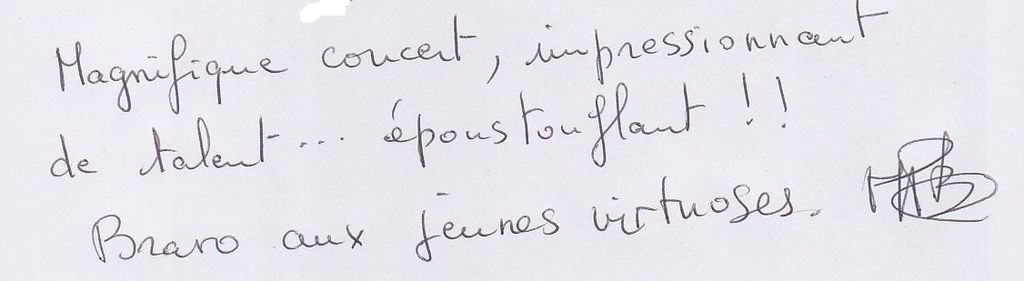 Magnifique concert, impressionnant
de talent... époustouflant !!
Bravo aux jeunes virtuoses.